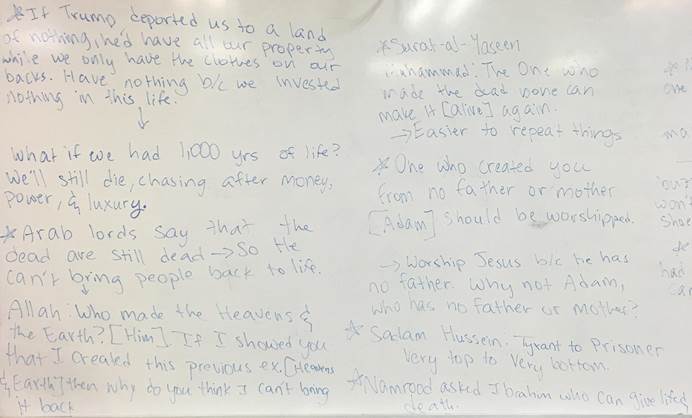 * If Trump deported us to a land
of nothing, he'd have all our property
while we only have the clothes on our
backs. Have nothing b/c we invested
nothing in this life.
↓
What if we had 1,000 yrs of life?
We'll still die, chasing after money,
power, & luxury.
* Arab lords say that the
dead are still dead → So He
can't bring people back to life.
↓
Allah: Who made the Heavens &
the Earth? [Him] If I showed you
that I created this previous ex. [Heavens
& Earth] then why do you think I can't bring
it back
* Surat-al-Yaseen
Muhammad: The One who
made the dead bone can
make it [alive] again.
→ Easier to repeat things
* One who created you
from no father or mother
[Adam] should be worshipped.
→ Worship Jesus b/c he has
no father. Why not Adam,
who has no father or mother?
* Sadam Hussein: Tyrant to Prisoner
Very top to very bottom.
* Namrood asked Ibrahim who can give life &
death.
*
one
ma
won't
had